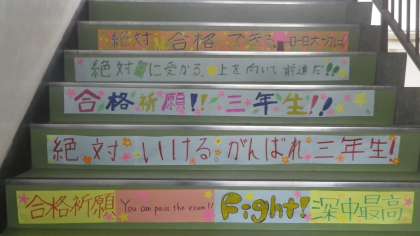 絶対合格できる
絶対に受かる。上を向いて前進だ!!
合格祈願!! 三年生!!
絶対いける。がんばれ三年生!
合格祈願 You can pass the exam!! Fight! 深中最高